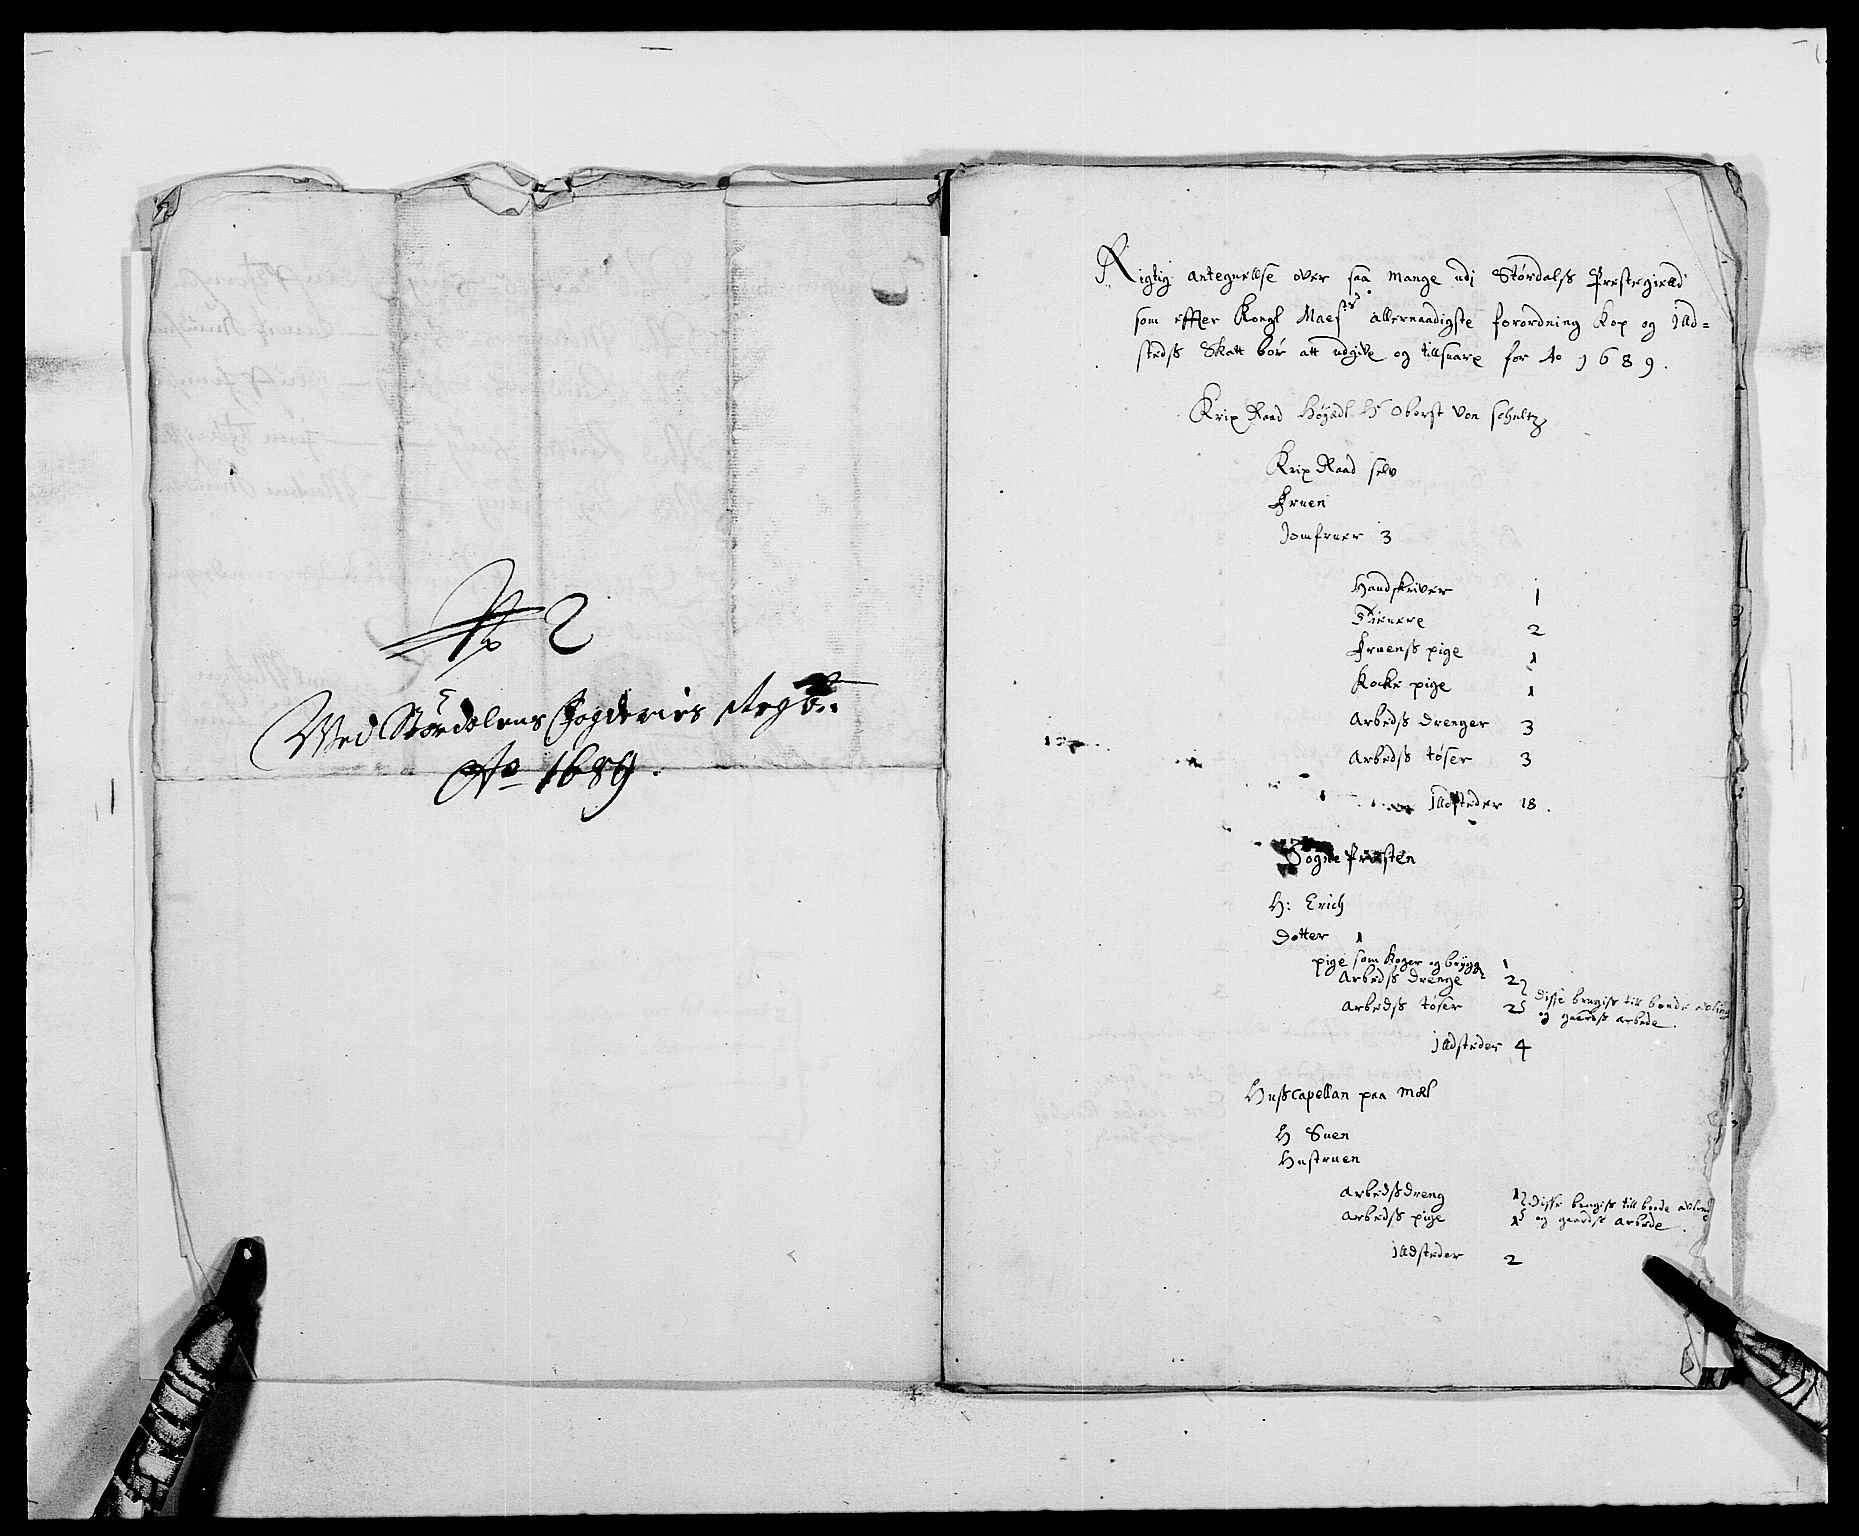 No 2
Med Stördalens Fogderies Regb:
Ao 1689.
Rigtig antegnellse over saa mange udj Størdalß Prestegield
som effter Kongl Maes.ts allernaadigste forordning Kop og Illd=
stedß Skatt bør att udgive og tillsuare for Ao 1689.
Krix Raad Høyedl Hr Oberst von schultz
Krix Raad selv
Fruen
Jomfruer 3
Handskriver 1
Tienere 2
Fruenß pige 1
Kocke pige 1
Arbedß drenger 3
Arbedß tøser 3
Illdsteder 18.
Sogne Presten
H: Erich
Dotter 1
pige som Koger og brygg: 1
Arbedß drenge 2
Arbedß tøser 2 Disse brugiß till bonde
og gaardß arbede.
Illdsteder 4
Hußcapellan paa Mæl
H Suen
Hustruen
Arbedßdreng 1 Disse brugiß till bonde
Arbedß pige 1 og gaardß arbede.
Illdsteder 2